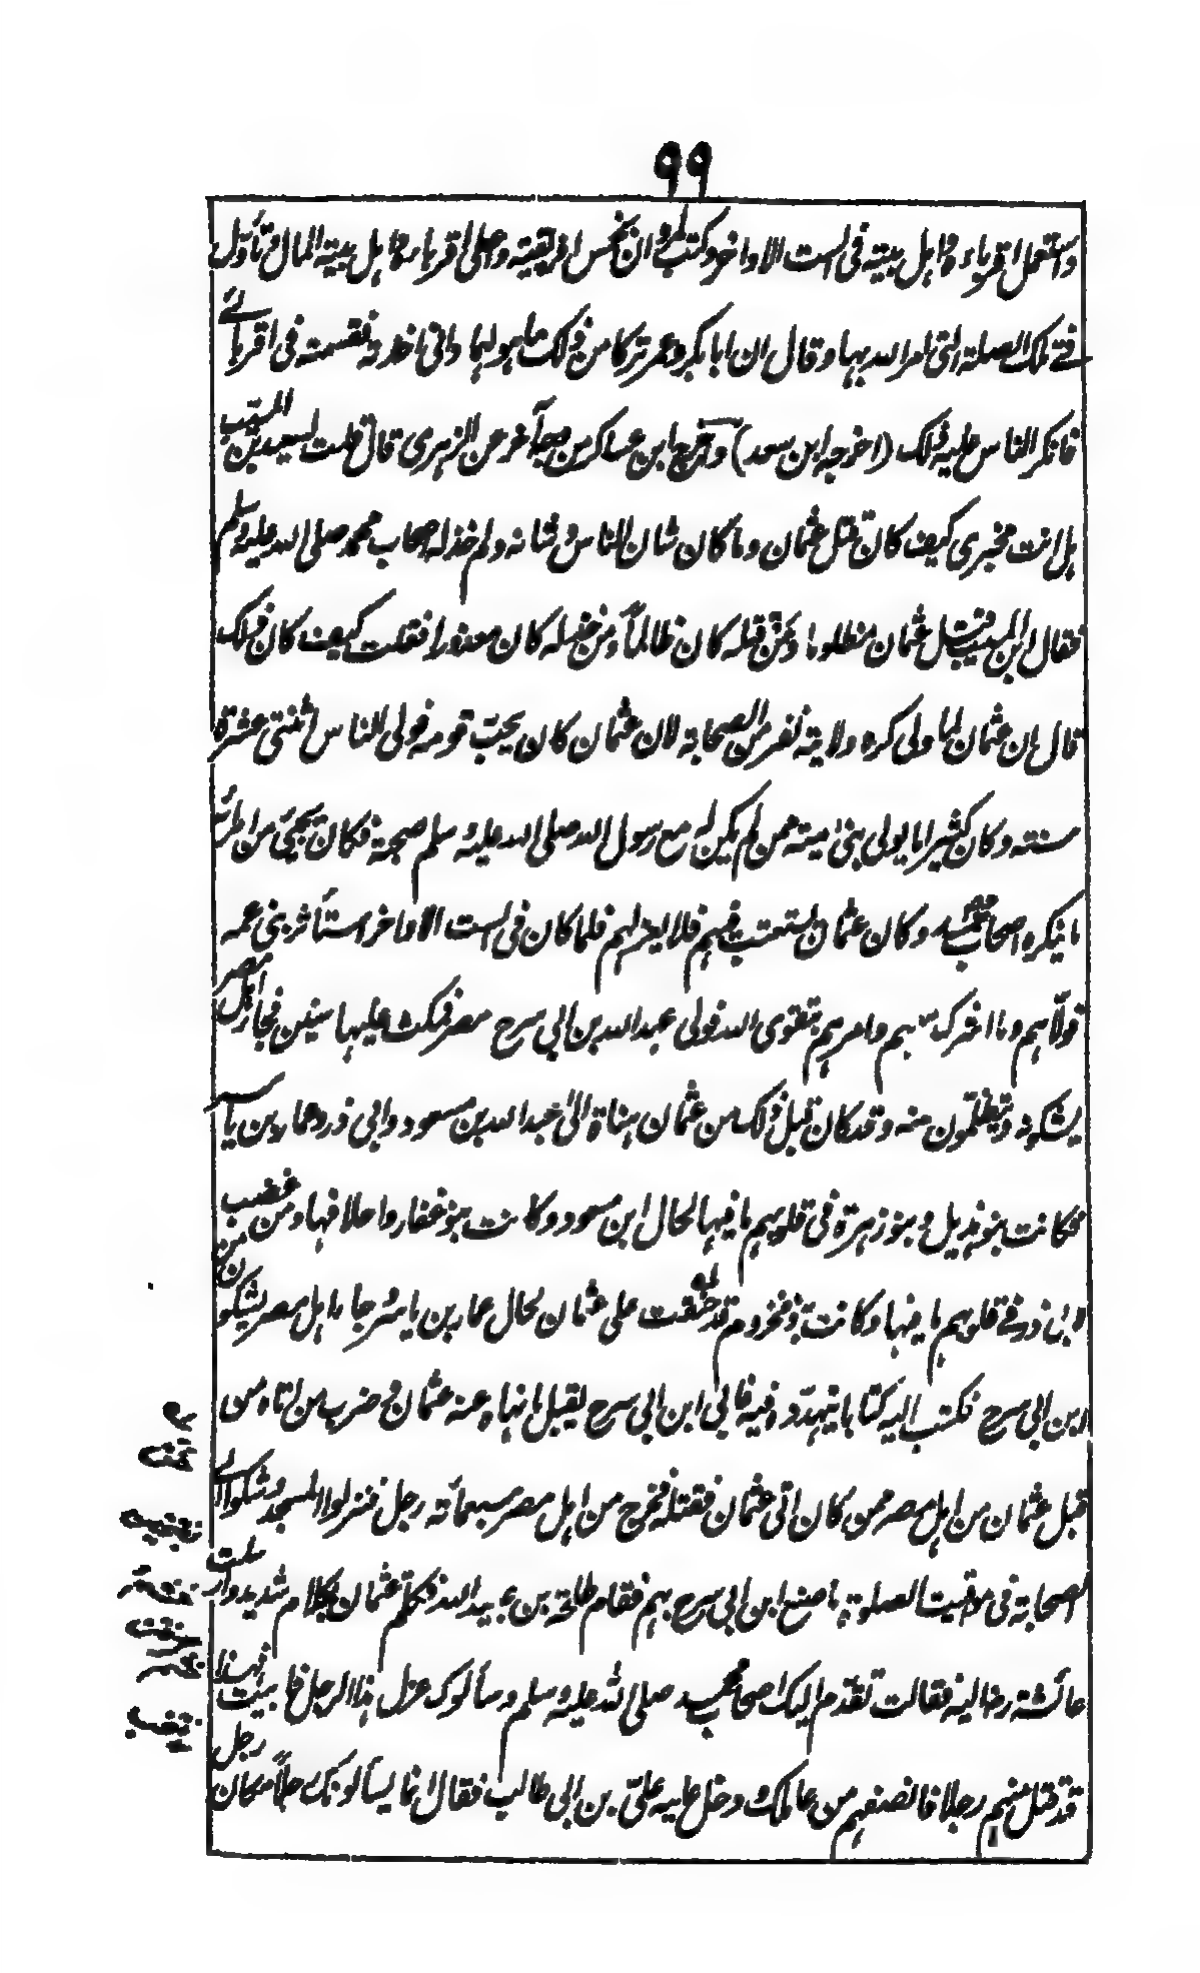 ٩٩
واستعمل اقرباءه واهل بيته فى الست الاواخر وكتب لمروان بخمس افريقية واعطى اقرباءه واهل بيته المال وتأول
فے ذلك الصلة التى امر الله بها وقال ان ابا بكر وعمر تركا من ذلك ما هو لهما وانى اخذته فقسمته فى اقربائے
فانكر الناس عليه ذلك (اخرجه ابن سعد) واخرج ابن عساكر من وجه آخر عن الزهرى قال قلت لسعيد بن المسيب
هل انت مخبرى كيف كان قتل عثمان وما كان شان الناس وشانه ولم خذله اصحاب محمد صلى الله عليه وسلم
فقال ابن المسيب قتل عثمان مظلوما ومن قتله كان ظالماً ومن خذله كان معذورا فقلت كيف كان ذلك
قال ان عثمان لما ولى كره ولايته نفر من الصحابة لان عثمان كان يحب قومه فولى الناس اثنتى عشرة
سنة وكان كثيرا ما يولى بنى امية ممن لم يكن له مع رسول الله صلى الله عليه وسلم صحبة فكان يجئ من امرائه
ما ينكره اصحاب محمد وكان عثمان يستعتب فيهم فلا يعزلهم فلما كان فى الست الاواخر استأثر بنى عمه
فولّاهم وما اشرك معهم وامرهم بتقوى الله فولى عبد الله بن ابى سرح مصر فمكث عليها سنين فجاء اهل مصر
يشكونه ويتظلمون منه وقد كان قبل ذلك من عثمان هناة الى عبد الله بن مسعود وابى ذر وعمار بن ياسر
فكانت بنو هذيل وبنو زهرة فى قلوبهم ما فيها لحال ابن مسعود وكانت بنو غفار واحلافها ومن غضب
لابى ذر فے قلوبهم ما فيها وكانت بنو مخزوم قد حنقت على عثمان لحال عمار بن ياسر وجاء اهل مصر يشكون من
ابن ابى سرح فكتب اليه كتابا يتهدده فيه فابى ابن ابى سرح يقبل ما نهاه عنه عثمان وضرب من اتاه من
قبل عثمان من اهل مصر ممن كان اتى عثمان فقتله فخرج من اهل مصر سبعمائة رجل فنزلوا المسجد وشكوا الے
الصحابة فى مواقيت الصلوة ما صنع ابن ابى سرح بهم فقام طلحة بن عبيد الله فكلم عثمان بكلام شديد وارسلت
عائشة رض اليه فقالت تقدم اليك اصحاب محمد صلى الله عليه وسلم وسألوك عزل هذا الرجل فابيت فهذا
قد قتل منهم رجلا فانصفهم من عاملك ودخل عليه علىّ بن ابى طالب فقال انما يسألونك رجلاً مكان رجل